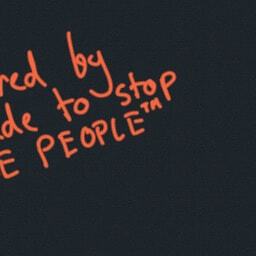 red by
de to stop
E PEOPLE™